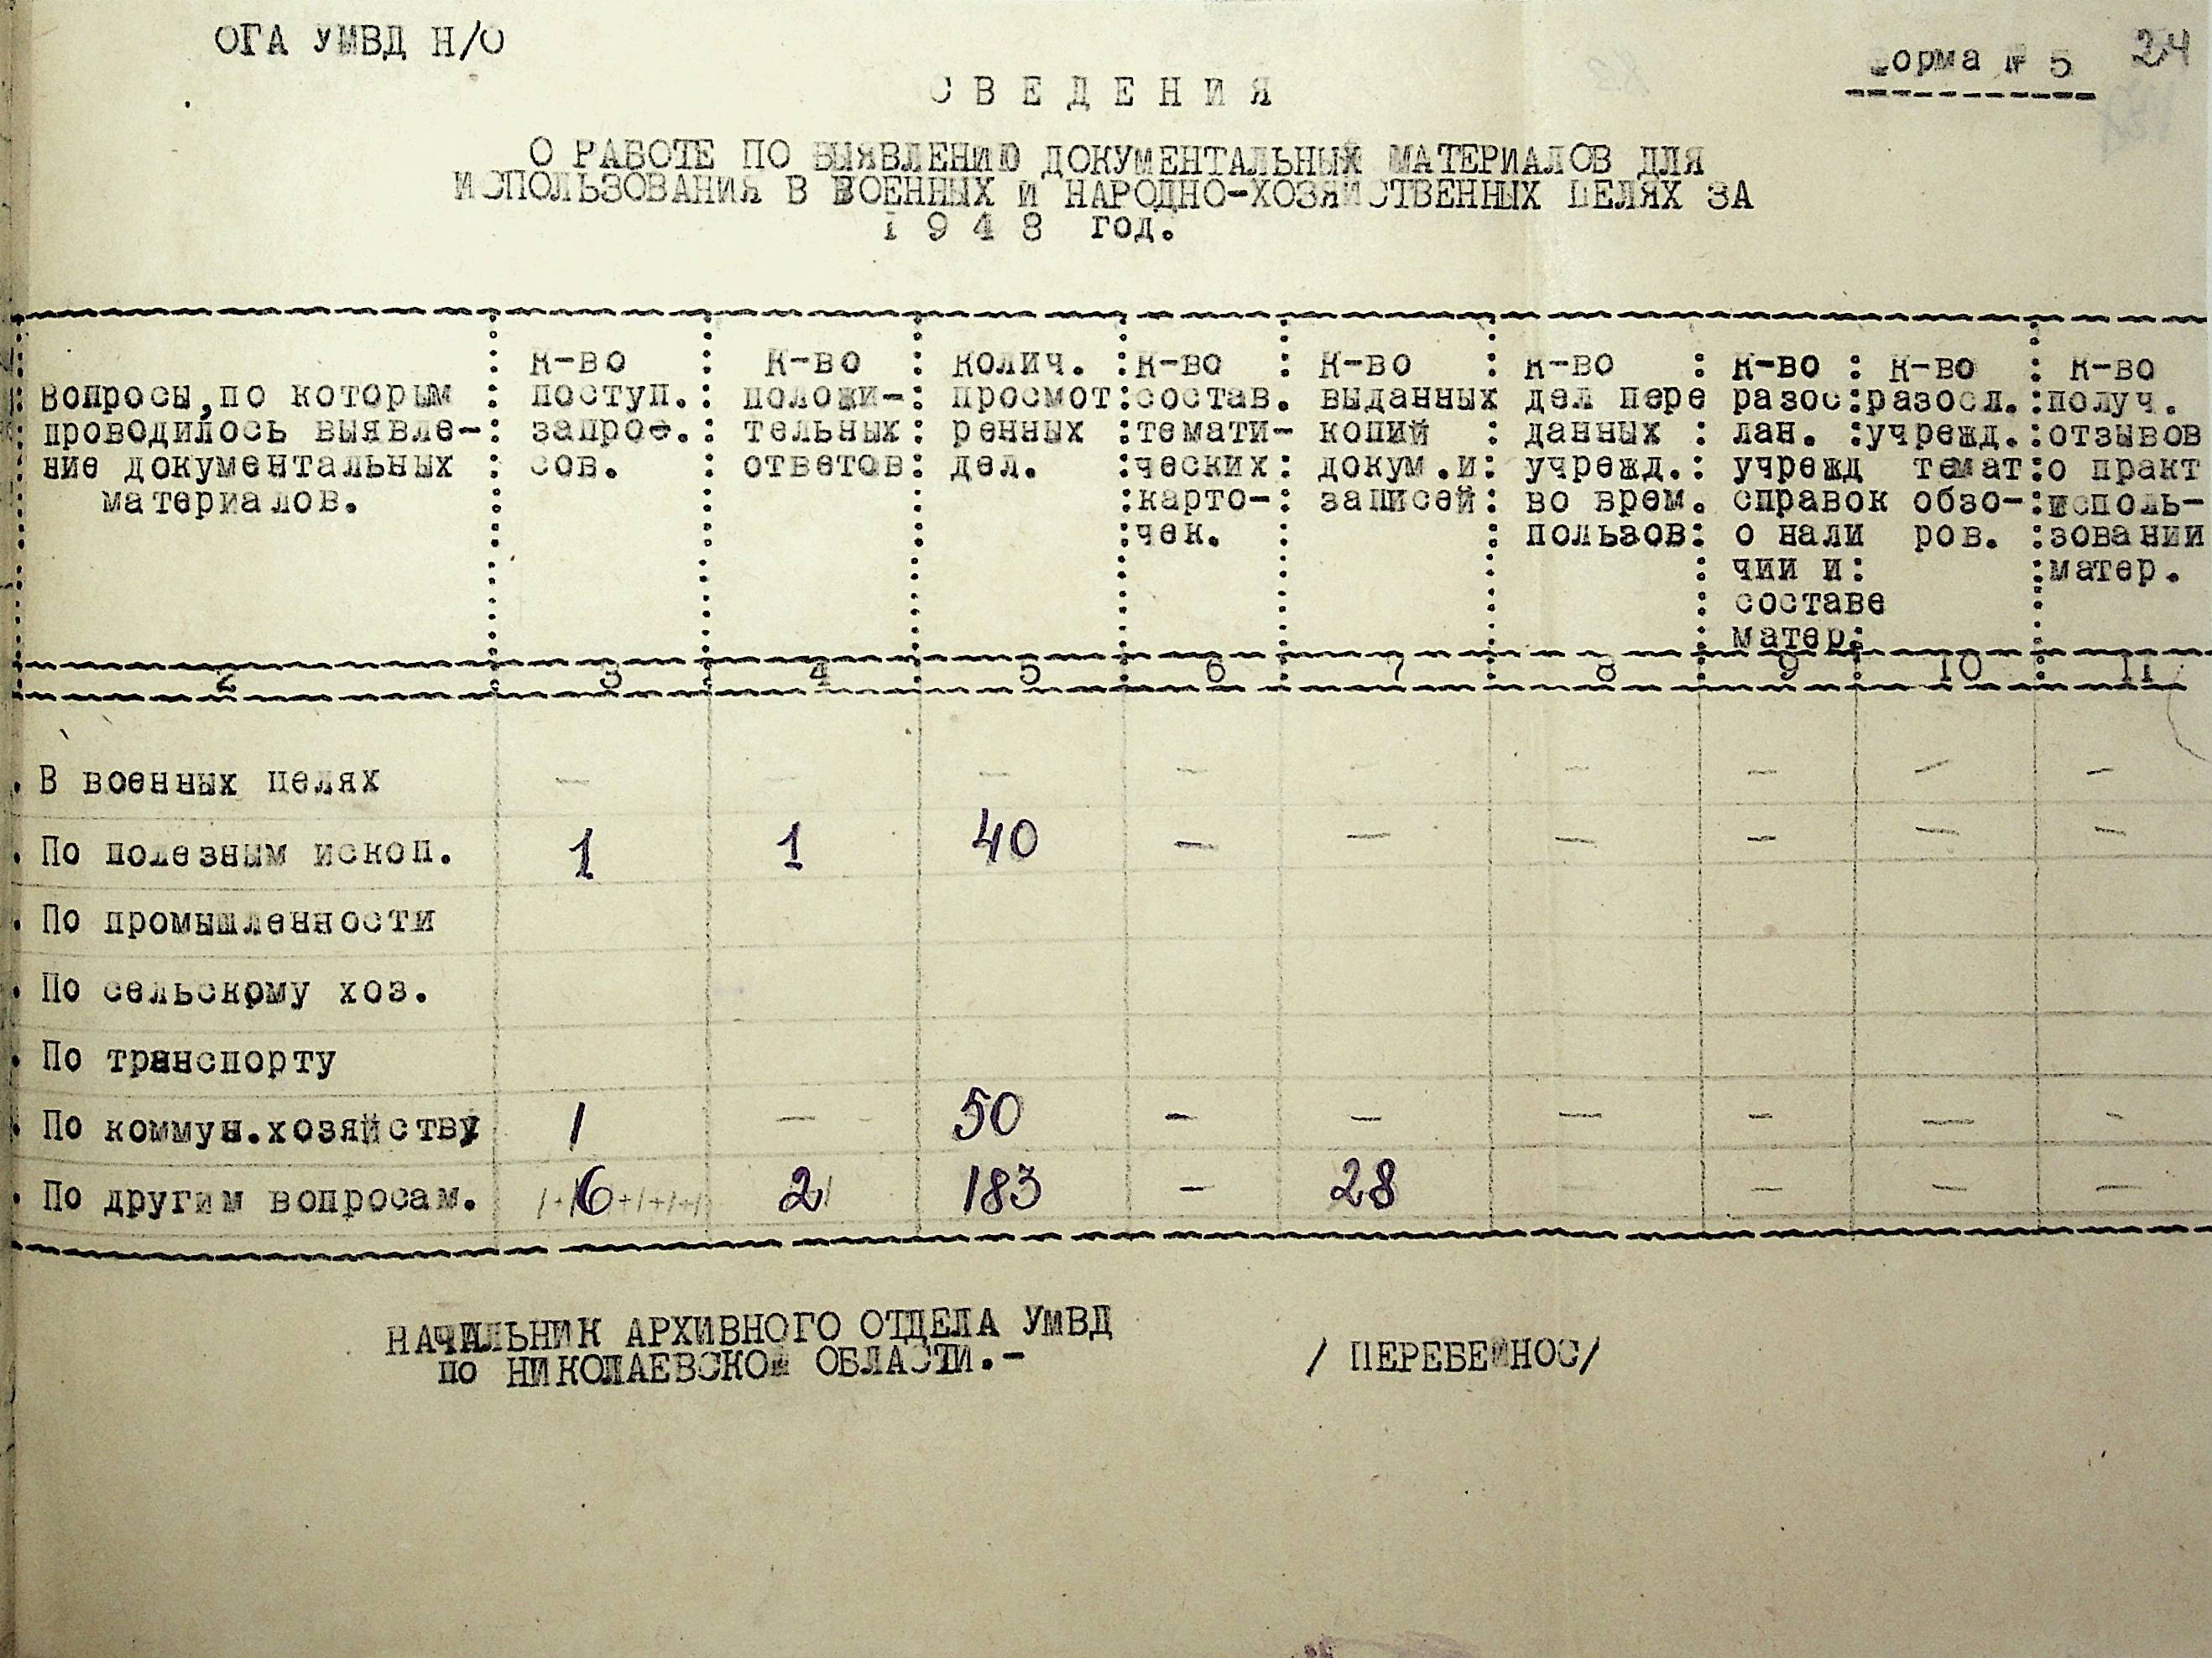 ОГА УМВД Н/О
Форма № 5 24
СВЕДЕНИЯ
О РАБОТЕ ПО ВЫЯВЛЕНИЮ ДОКУМЕНТАЛЬНЫХ МАТЕРИАЛОВ ДЛЯ
ИСПОЛЬЗОВАНИЯ В ВОЕННЫХ И НАРОДНО-ХОЗЯЙСТВЕННЫХ ЦЕЛЯХ ЗА
1948 год.
К-во К-во Колич. К-во К-во К-во К-во К-во К-во
Вопросы,по которым поступ. положи- просмот состав. выданных дел пере разос разосл. получ.
проводилось выявле- запро. тельных ренных темати- копий данных лан. учрежд. отзывов
ние документальных сов. ответов дел. ческих докум.и учрежд. учрежд темат о практ
материалов. карто- записей во врем. справок обзо- исполь-
чек. пользов о нали ров. зовании
чии и матер.
составе
матер.
2 3 4 5 6 7 8 9 10 11
В военных целях — — — — — — — — —
По полезным ископ. 1 1 40 — — — — — —
По промышленности
По сельскрму хоз.
По транспорту
По коммун.хозяйству 1 — 50 — — — — — —
По другим вопросам. 6 2 183 — 28 — — — —
НАЧАЛЬНИК АРХИВНОГО ОТДЕЛА УМВД
по НИКОЛАЕВСКОЙ ОБЛАСТИ.-
/ ПЕРЕБЕЙНОС/